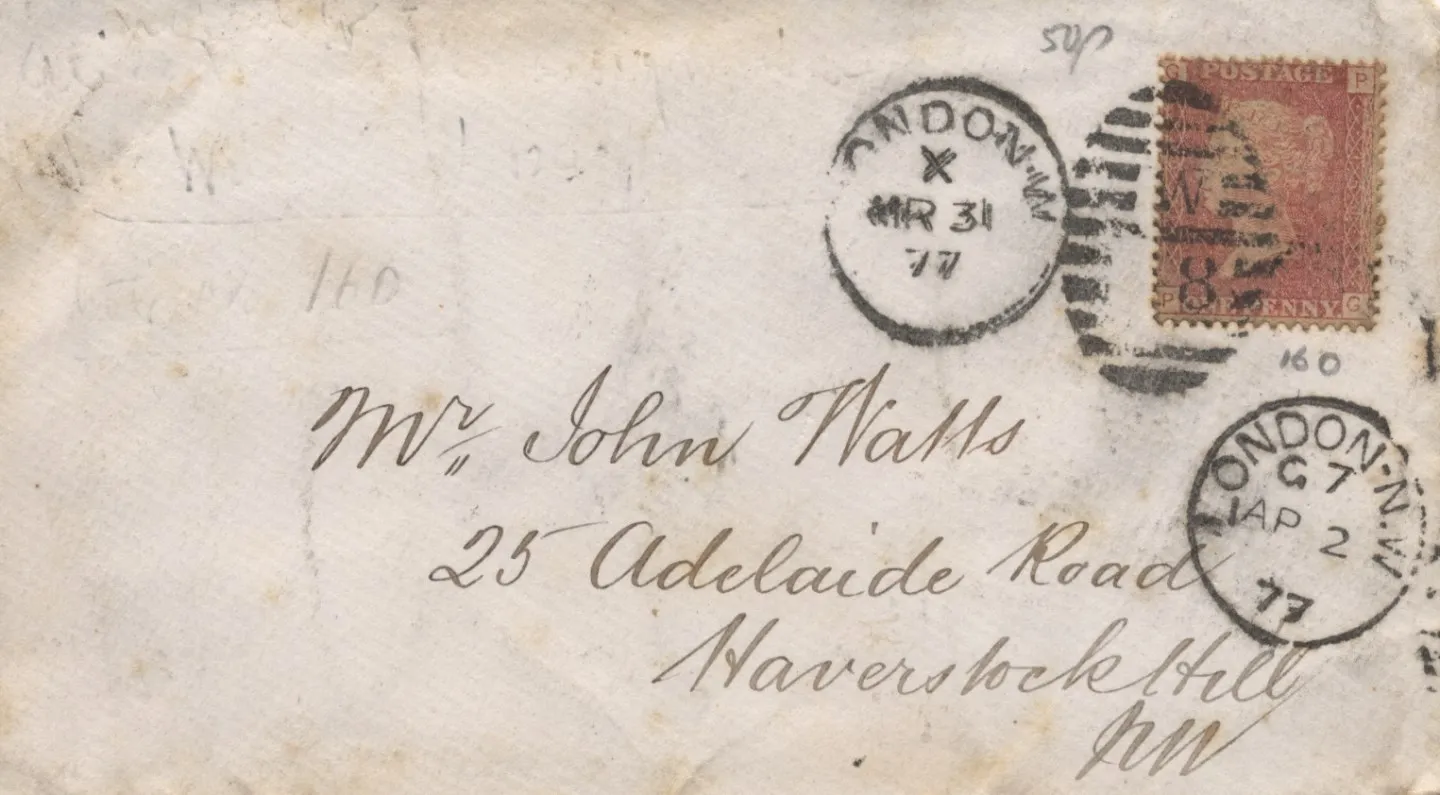 50p
G POSTAGE P
W
8
P PENNY G
LONDON·W
X
MR 31
77
160
160
LONDON·N.W
G 7
AP 2
77
Mr John Watts
25 Adelaide Road
Haverstock Hill
NW